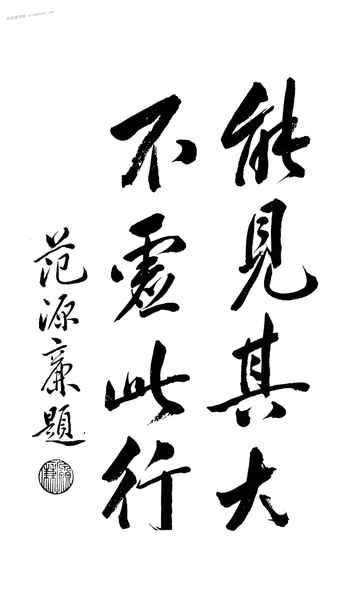 能見其大
不虛此行
范源廉題